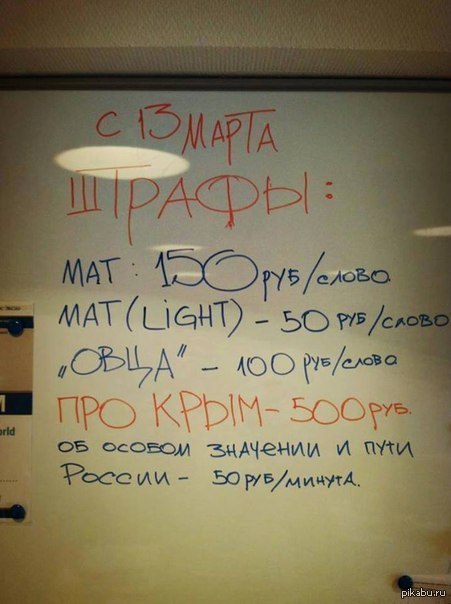 С 13 МАРТА
ШТРАФЫ:
МАТ: 150 РУБ/СЛОВО.
МАТ (LIGHT) - 50 РУБ/СЛОВО
„ОВЦА" - 100 РУБ/СЛОВО
ПРО КРЫМ - 500 РУБ.
ОБ ОСОБОМ ЗНАЧЕНИИ И ПУТИ
РОССИИ - 50 РУБ/МИНУТА.
orld
pikabu.ru